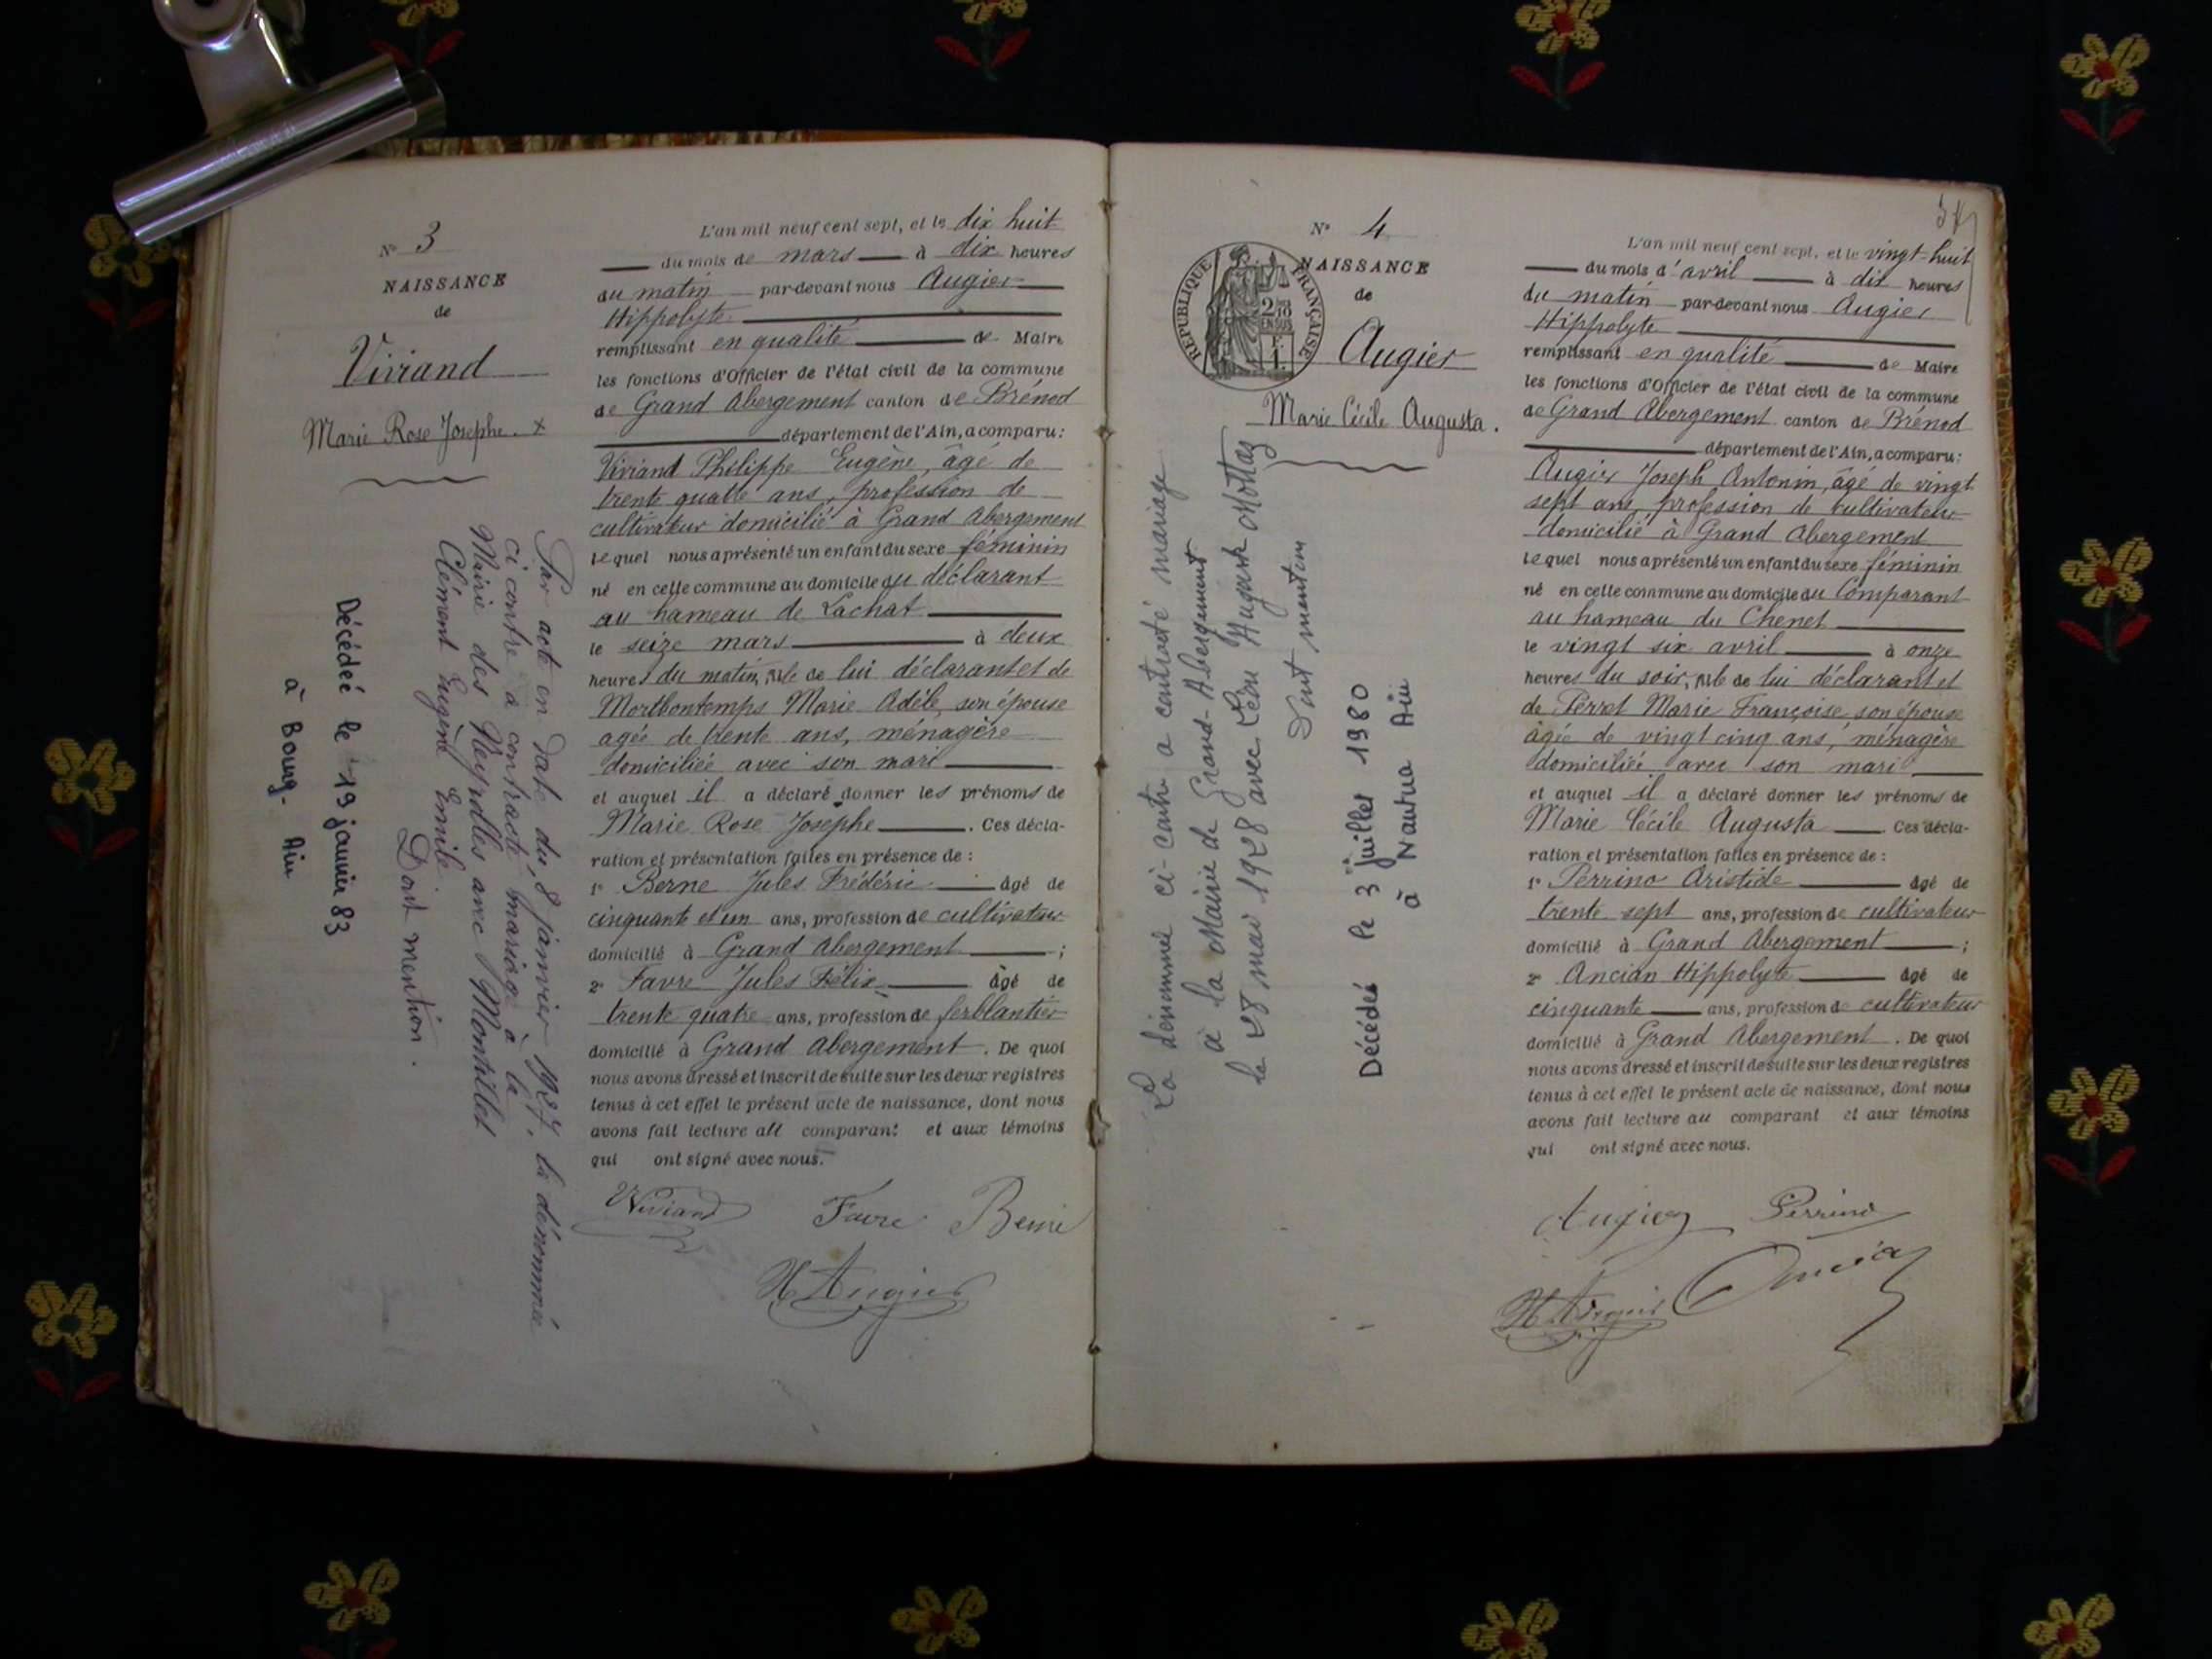 N° 3
NAISSANCE
de
Viviand
Marie Rose Josephe. x
L'an mil neuf cent sept, et le dix huit
du mois de mars à dix heures
du matin par-devant nous Augier
Hippolyte
remplissant en qualité de Maire
les fonctions d'Officier de l'état civil de la commune
de Grand Abergement canton de Brénod
département de l'Ain, a comparu:
Viviand Philippe Eugène, âgé de
trente quatre ans, profession de
cultivateur domicilié à Grand Abergement
lequel nous a présenté un enfant du sexe féminin
né en cette commune au domicile du déclarant
au hameau de Lachat
le seize mars à deux
heures du matin, née de lui déclarant et de
Mortbontemps Marie Adèle, son épouse
agée de trente ans, ménagère
domiciliée avec son mari
et auquel il a déclaré donner les prénoms de
Marie Rose Josephe. Ces décla-
ration et présentation faites en présence de:
1° Berne Jules Frédéric âgé de
cinquante et un ans, profession de cultivateur
domicilié à Grand Abergement;
2° Favre Jules Félix, âgé de
trente quatre ans, profession de ferblantier
domicilié à Grand Abergement. De quoi
nous avons dressé et inscrit de suite sur les deux registres
tenus à cet effet le présent acte de naissance, dont nous
avons fait lecture au comparant et aux témoins
qui ont signé avec nous.
Viviand Favre Berne
H Augier
Par acte en date du 8 janvier 1927, la dénommée
ci contre a contracté mariage à la
Mairie des Neyrolles avec Montillet
Clément Eugène Emile.
Dont mention.
Décédée le 19 janvier 83
à Bourg - Ain
N° 4
NAISSANCE
de
REPUBLIQUE FRANÇAISE
2/10
EN SUS
F.
1.
Augier
Marie Cécile Augusta.
La dénommée ci-contre a contracté mariage
à la Mairie de Grand-Abergement
le 28 mai 1928 avec Léon Auguste Mottaz
Dont mention
Décédée le 3 juillet 1980
à Nantua Ain
L'an mil neuf cent sept, et le vingt-huit
du mois d'avril à dix heures
du matin par-devant nous Augier
Hippolyte
remplissant en qualité de Maire
les fonctions d'Officier de l'état civil de la commune
de Grand Abergement canton de Brénod
département de l'Ain, a comparu:
Augier Joseph Antonin, âgé de vingt
sept ans, profession de cultivateur
domicilié à Grand Abergement
lequel nous a présenté un enfant du sexe féminin
né en cette commune au domicile du Comparant
au hameau du Chenet
le vingt six avril à onze
heures du soir, née de lui déclarant et
de Perret Marie Françoise son épouse
âgée de vingt cinq ans, ménagère
domiciliée avec son mari
et auquel il a déclaré donner les prénoms de
Marie Cécile Augusta Ces décla-
ration et présentation faites en présence de:
1° Perrino Aristide âgé de
trente sept ans, profession de cultivateur
domicilié à Grand Abergement;
2° Ancian Hippolyte âgé de
cinquante ans, profession de cultivateur
domicilié à Grand Abergement. De quoi
nous avons dressé et inscrit de suite sur les deux registres
tenus à cet effet le présent acte de naissance, dont nous
avons fait lecture au comparant et aux témoins
qui ont signé avec nous.
Augier Perrino
H Augier Ancian